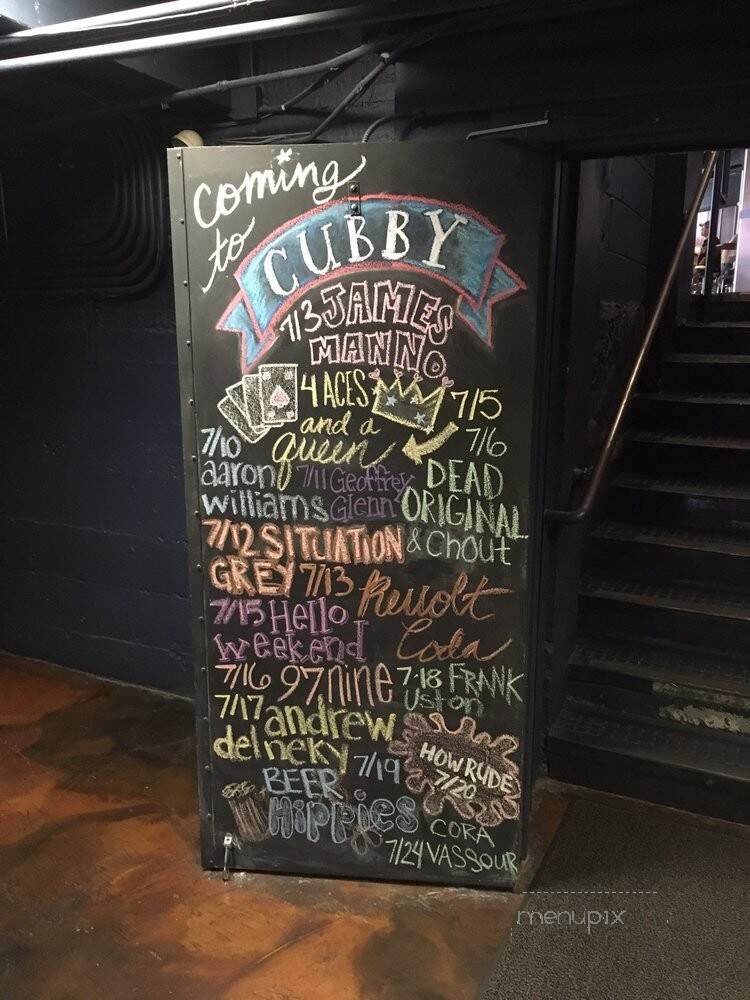 coming
to
CUBBY
7/3 JAMES
MANNO
4 ACES
and a
queen
7/5
7/6
DEAD
ORIGINAL
& Chout
7/10
aaron
williams
7/11 Geoffrey
Glenn
7/12 SITUATION
GREY
7/13 Revolt
Coda
7/15 Hello
weekend
7/16 97nine
7-18 FRANK
uston
7/17 andrew
delneky
7/19
BEER
Hippies
HOW RUDE
7/20
CORA
7/24 VASSOUR
menupix